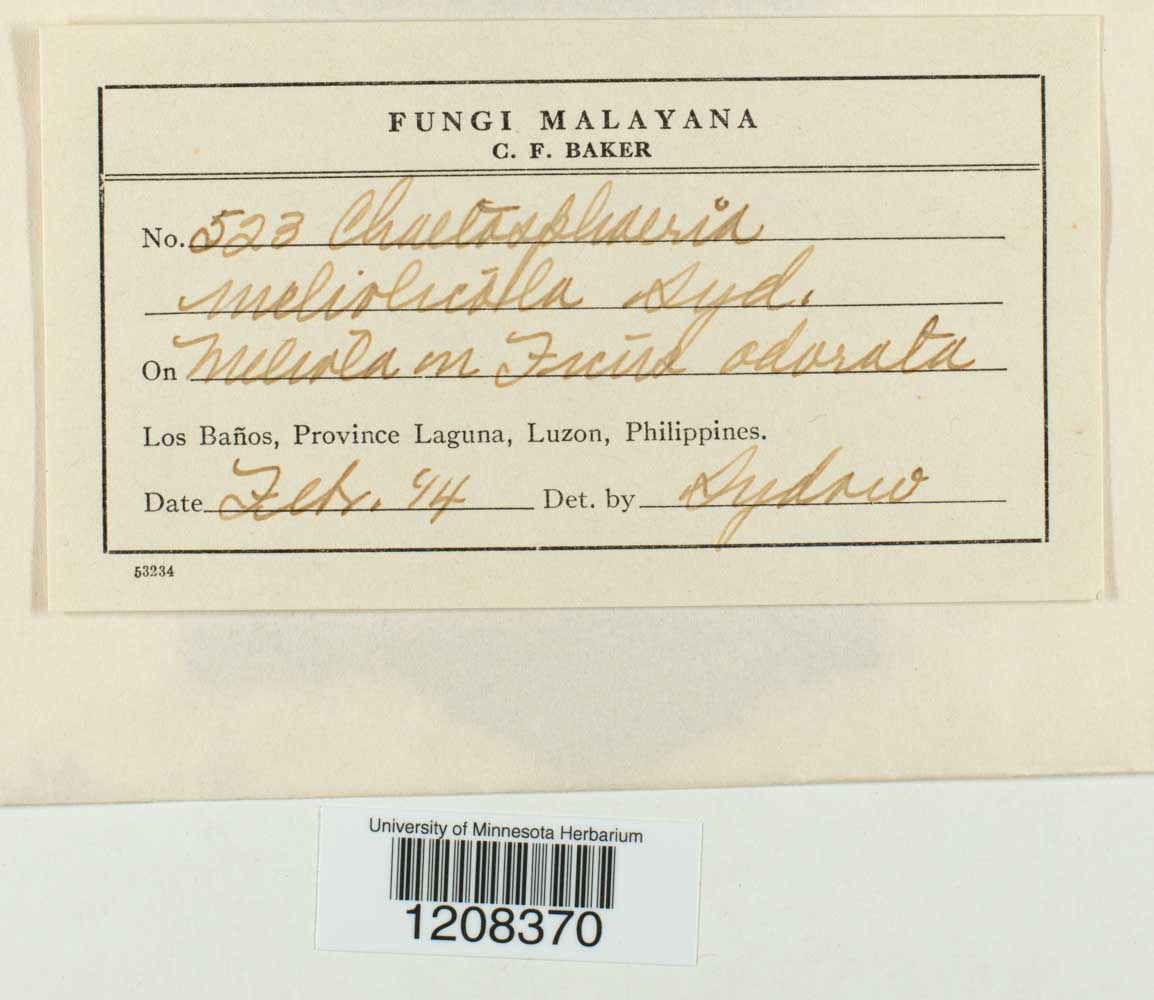 FUNGI MALAYANA
C. F. BAKER
No. 523 Chaetosphaeria
meliolicola Syd.
On Meliola on Ficus odorata
Los Baños, Province Laguna, Luzon, Philippines.
Date Feb. '14 Det. by Sydow
53234
University of Minnesota Herbarium
1208370